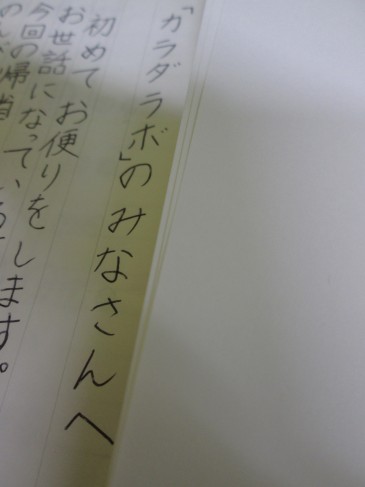 「カラダラボ」のみなさんへ
初めてお便りをします。
お世話になっている
今回の帰省